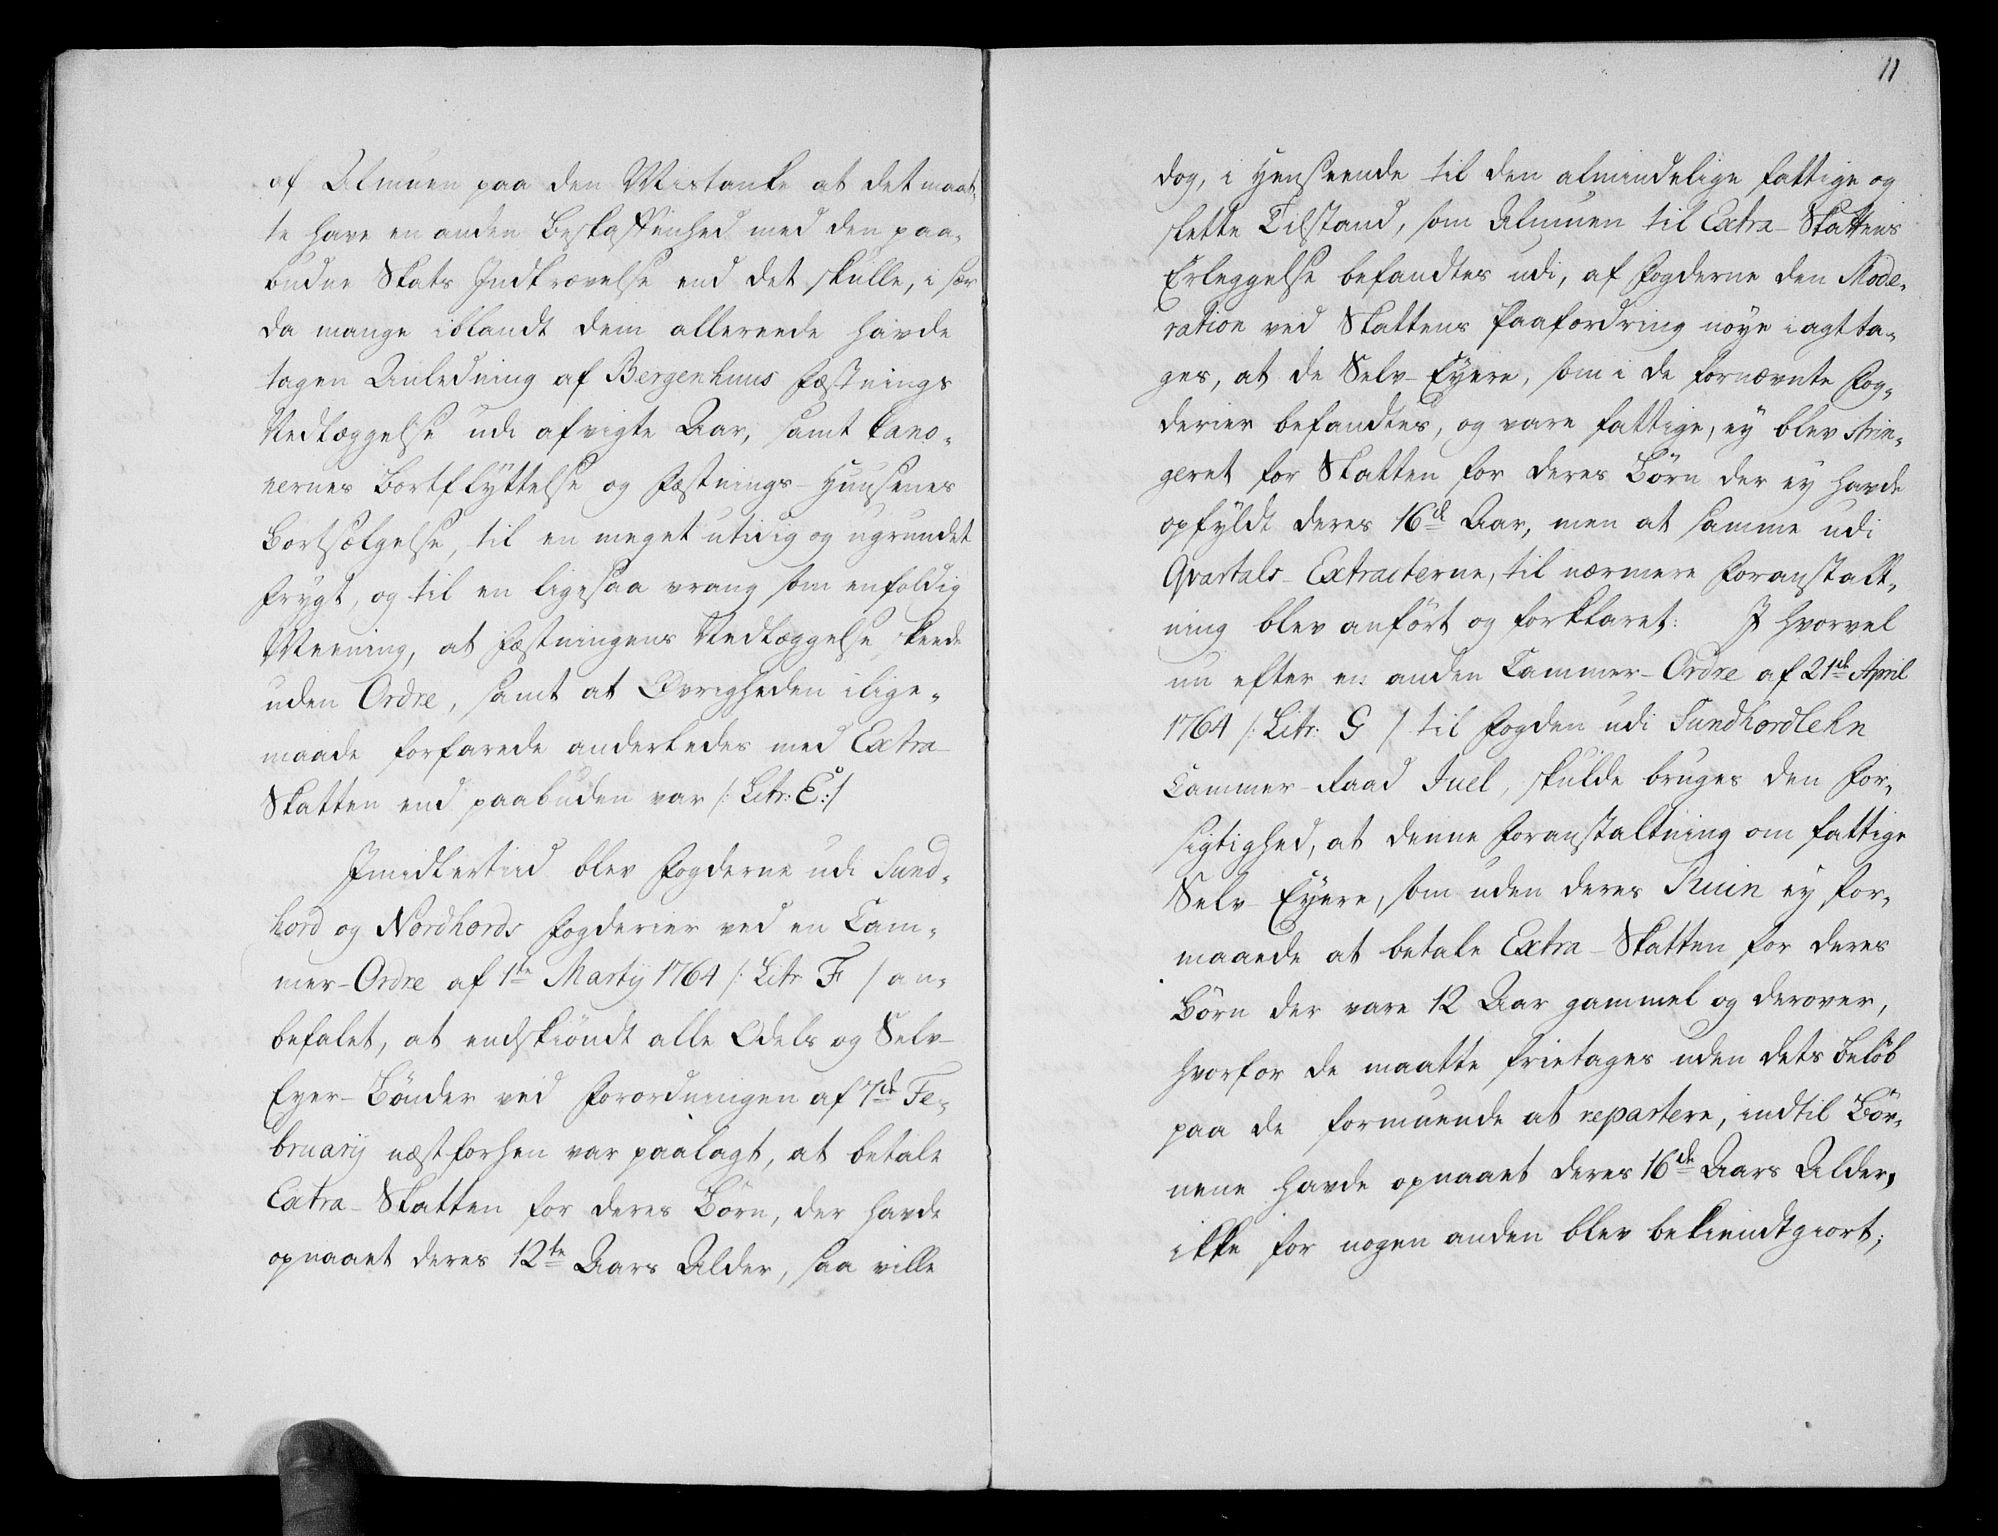 af Almuen paa den Mistanke at det maat-
te have en anden Beskaffenhed med den paa-
budne Skats Indkrævelse end det skulle, i sær
da mange iblandt dem allereede havde
tagen Anledning af Bergenhuus Fæstnings
Nedlæggelse udi afvigte Aar, samt Cano-
nernes Bortflyttelse og Fæstnings-Huusenes
Bortsælgelse, til en meget utidig og ugrundet
Frygt, og til en ligesaa vrang som enfoldig
Meening, at Fæstningens Nedlæggelse skeede
uden Ordre, samt at Øvrigheden ilige-
maade forfarede anderledes med Extra-
Skatten end paabuden var /: Litr: E :/
Imidlertiid blev Fogderne udi Sund-
hord og Nordhords Fogderier ved en Cam-
mer-Ordre af 1te Martij 1764 /: Litr F / an-
befalet, at endskiöndt alle Odels og Selv-
Eyer-Bönder ved Forordningen af 7de Fe-
bruarij næstforhen var paalagt, at betale
Extra-Skatten for deres Börn, der havde
opnaaet deres 12te Aars Alder, saa ville
11
dog, i Henseende til den almindelige fattige og
slette Tilstand, som Almuen til Extra-Skattens
Erleggelse befandtes udi, af Fogderne den Mode-
ration ved Skattens Paafordring nöye iagtta-
ges, at de Selv-Eyere, som i de fornævnte Fog-
derier befandtes, og vare fattige, ey blev strin-
geret for Skatten for deres Börn der ey havde
opfyldt deres 16de Aar, men at samme udi
Qvartals-Extracterne, til nærmere Foranstalt-
ning blev anfört og forklaret: I hvorvel
nu efter en anden Cammer-Ordre af 21de April
1764 /: Litr: G / til Fogden udi Sundhordlehn
Cammer-Raad Juel, skulde bruges den For-
sigtighed, at denne Foranstaltning om fattige
Selv-Eyere, som uden deres Ruin ey for-
maaede at betale Extra-Skatten for deres
Börn der vare 12 Aar gammel og derover,
hvorfor de maatte frietages uden dets Belöb
paa de formuende at repartere, indtil Bör-
nene havde opnaaet deres 16de Aars Alder,
ikke for nogen anden blev bekiendtgiort;